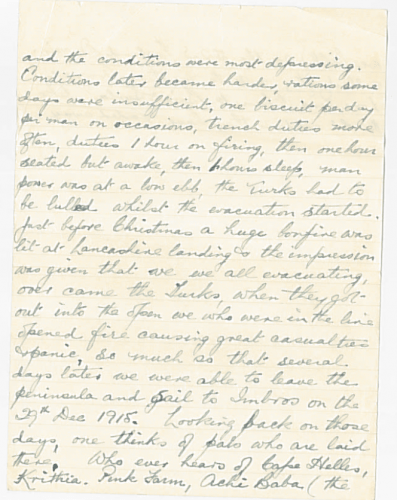 and the conditions were most depressing.
Conditions later became harder, rations some
days were insufficient, one biscuit per day
per man on occasions, trench duties more
often, duties 1 hour on firing, then one hour
seated but awake, then hours sleep, man
power was at a low ebb, the Turks had to
be lulled whilst the evacuation started.
Just before Christmas a huge bonfire was
lit at Lancashire landing & the impression
was given that we we all evacuating,
over came the Turks, when they got
out into the open we who were in the line
opened fire causing great casualties
& panic, so much so that several
days later we were able to leave the
peninsula and sail to Imbros on the
29th Dec 1915. Looking back on those
days, one thinks of pals who are laid
there, Who ever hears of Cape Helles,
Krithia. Pink Farm, Achi Baba (the